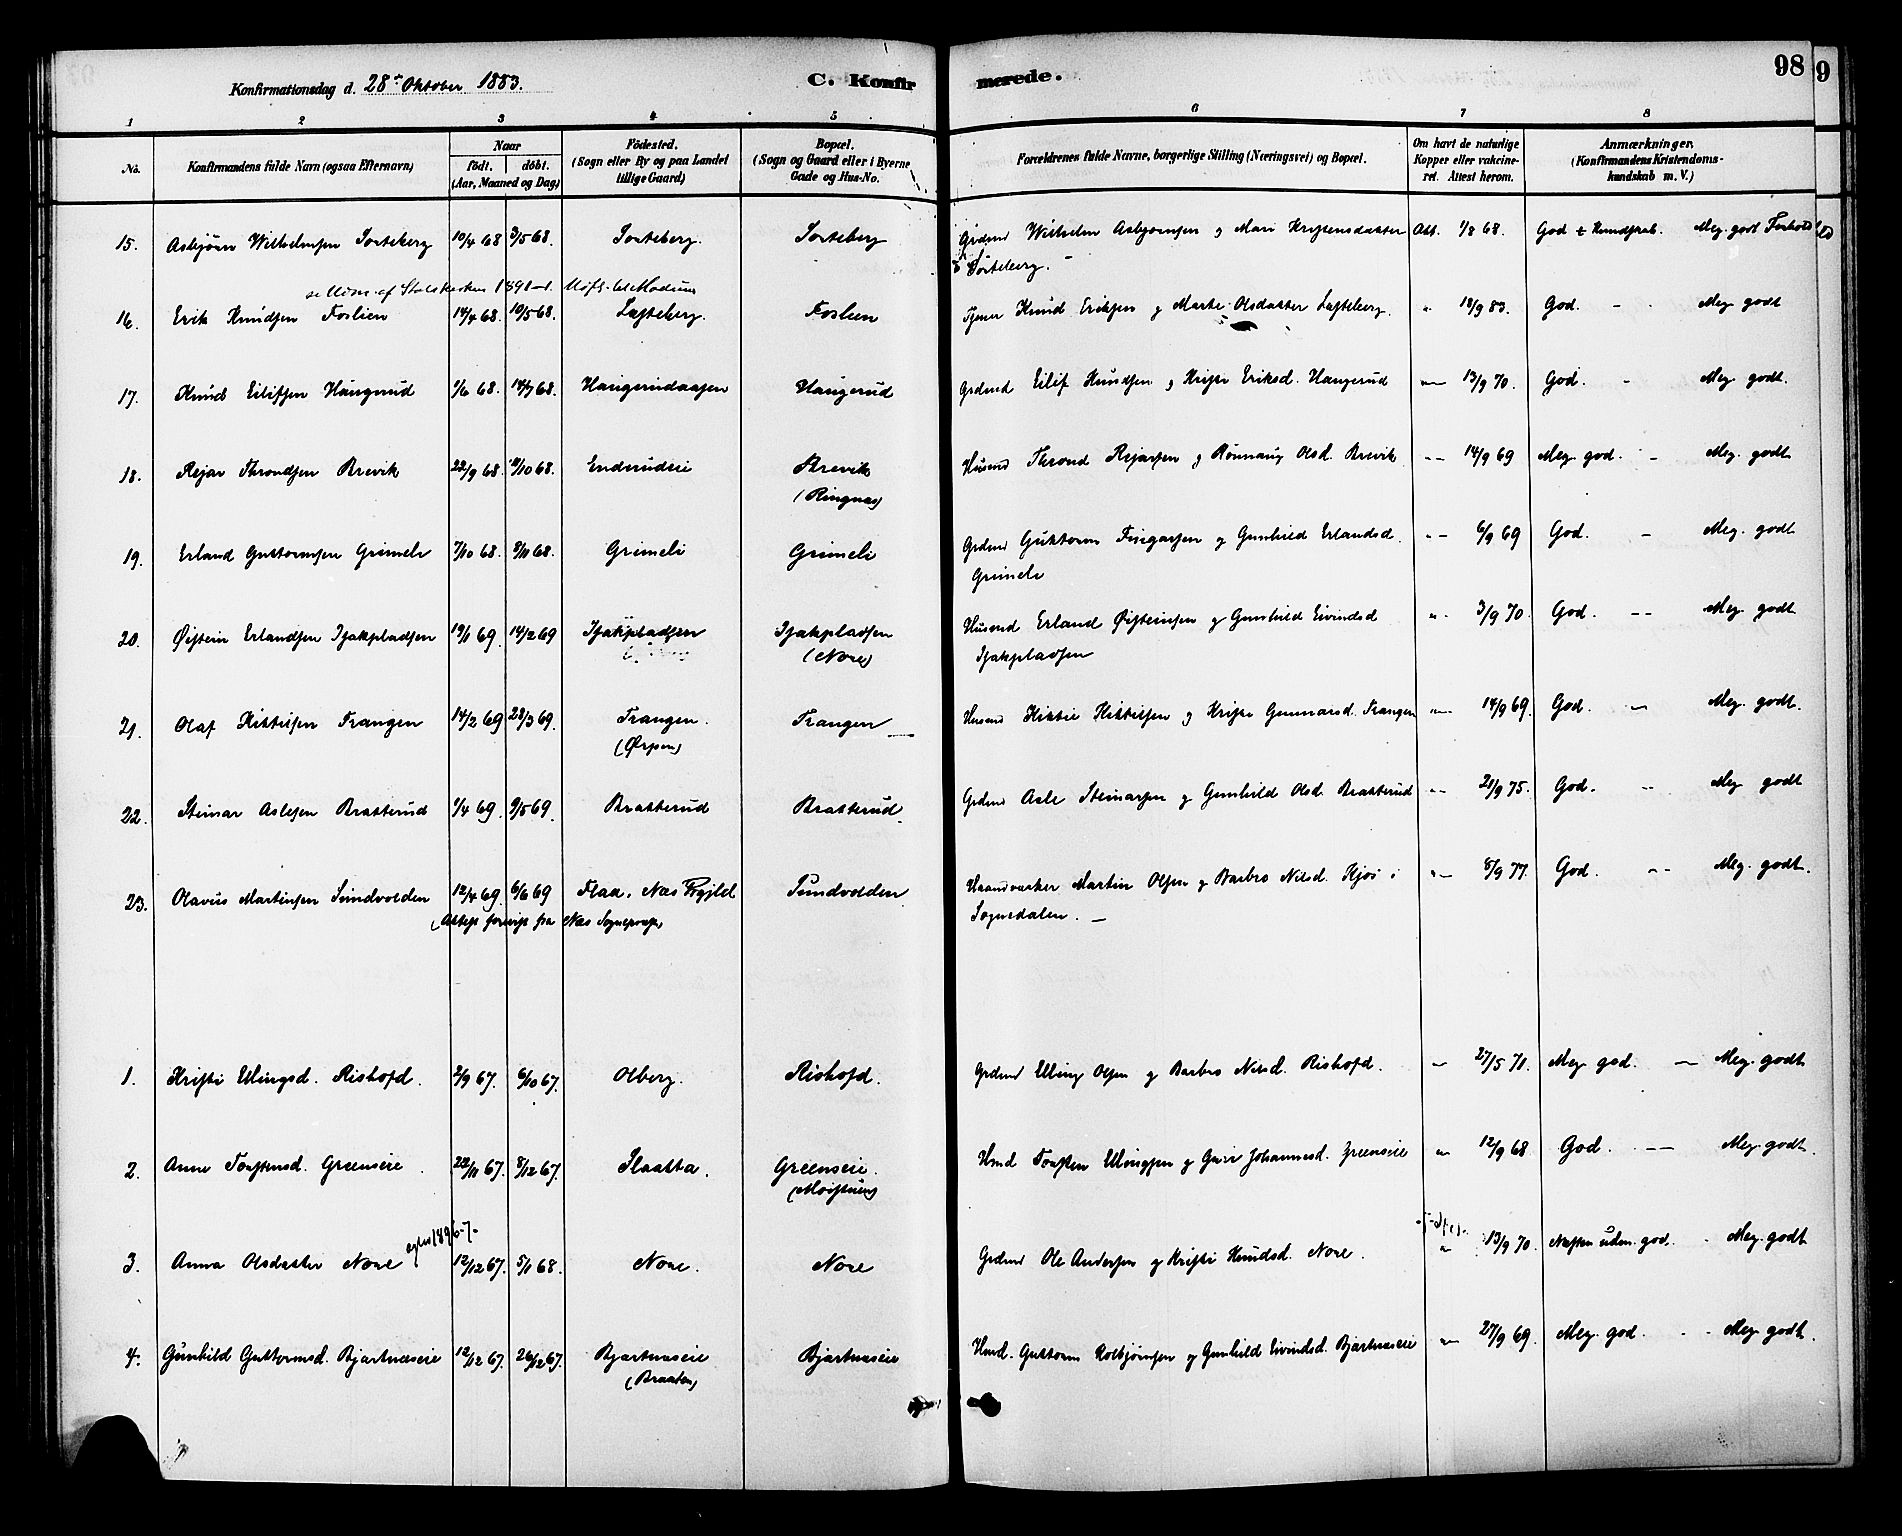 Konfirmationsdag d. 28de Oktober 1883.
C. Konfir
merede.
98
9
1 2 3 4 5 6 7 8
No.
Konfirmandens fulde Navn (ogsaa Efternavn)
Naar
födt. döbt.
(Aar, Maaned og Dag)
Födested.
(Sogn eller By og paa Landet
tillige Gaard)
Bopæl.
(Sogn og Gaard eller i Byerne
Gade og Hus-No.
Forældrenes fulde Navne, borgerlige Stilling (Næringsvei) og Bopæl.
Om havt de naturlige
Kopper eller vakcine-
ret. Attest herom.
Anmærkninger,
(Konfirmandens Kristendoms-
kundskab m. V.)
15. Asbjörn Wilhelmsen Sorteberg 10/4 68 3/5 68. Sorteberg. Sorteberg Grdmd Wilhelm Asbjørnsen g Mari Kristensdatter Att. 1/8 68. God Kundskab. Meg. godt Forhold
Sorteberg.
af Statskirken 1891
16. Erik Knudsen Foslien 14/4 68. 10/5 68. Lafteberg. Foslien Tjener Knud Eriksen g Marte Olsdatter Lafteberg. " 18/9 83. God. - Meg godt
17. Knud Eilifsen Haugerud 1/6 68. 14/7 68. Haugerudaasen Haugerud Grdmd Eilif Knudsen g Kristi Eriksd. Haugerud " 13/9 70. God. - Meg godt.
18. Rejar Throndsen Brevik 22/9 68. 11/10 68. Enderudeie Brevik Husmd Thrond Rejarsen g Rönnaug Olsd. Brevik " 14/9 69 Meg. god. - Meg. godt
(Ringnæs)
19. Erland Guttormsen Grimeli 7/10 68. 8/11 68. Grimeli Grimeli Grdmd Guttorm Fingarsen g Gunhild Erlandsd. " 6/9 69 God. - Meg. godt
Grimeli
20. Øistein Erlandsen Isakpladsen 19/1 69. 14/2 69 Isakpladsen Isakpladsen Husmd Erland Øisteinsen g Gunhild Eivindsd " 3/9 70. God. - Meg. godt
(Nore) Isakpladsen
21. Olaf Kittilsen Trangen 14/2 69 28/3 69. Trangen. Trangen Husmd Kittil Kittilsen g Kristi Gunnarsd. Trangen " 14/9 69. God. - Meg. godt.
(Ørpen)
22. Steinar Aslesen Bratterud 1/4 69. 9/5 69. Bratterud Bratterud. Grdmd Asle Steinarsen g Gunhild Olsd Bratterud " 21/9 75. God. - Meg godt
23. Olavus Martinsen Sundvolden 12/4 69. 6/6 69 Flaa, Næs Prgjld Sundvolden Haandværker Martin Olsen g Barbro Nilsd. Kjos i " 8/9 77. God. - Meg. godt.
(Attest forevist fra Næs Sogneprest) Sognedalen. -
1. Kristi Ellingsd. Rishofd. 2/9 67. 6/10 67. Olberg. Rishofd. Grdmd Elling Olsen g Barbro Nilsd. Rishofd. " 27/5 71. Meg god. - Meg. godt
2. Anne Torstensd. Greenseie. 22/11 67. 8/12 67. Slaatta. Greenseie. Hmd Torsten Ellingsen g Guri Johannesd. Greenseie " 12/9 68. God. - Meg. godt.
3. Anna Olsdatter Nore 12/12 67. 5/1 68. Nore. Nore Grdmd Ole Andersen g Kristi Knudsd. Nore. " 13/9 70. Næsten uden god. Meg. godt
4. Gunhild Guttormsd. Bjertnæseie 12/12 67. 26/12 67. Bjertnæseie Bjertnæseie Hmd. Guttorm Kolbjörnsen g Gunhild Eivindsd. Bjertnæseie " 27/9 69. Meg. god. - Meg. godt.
(Braaten)